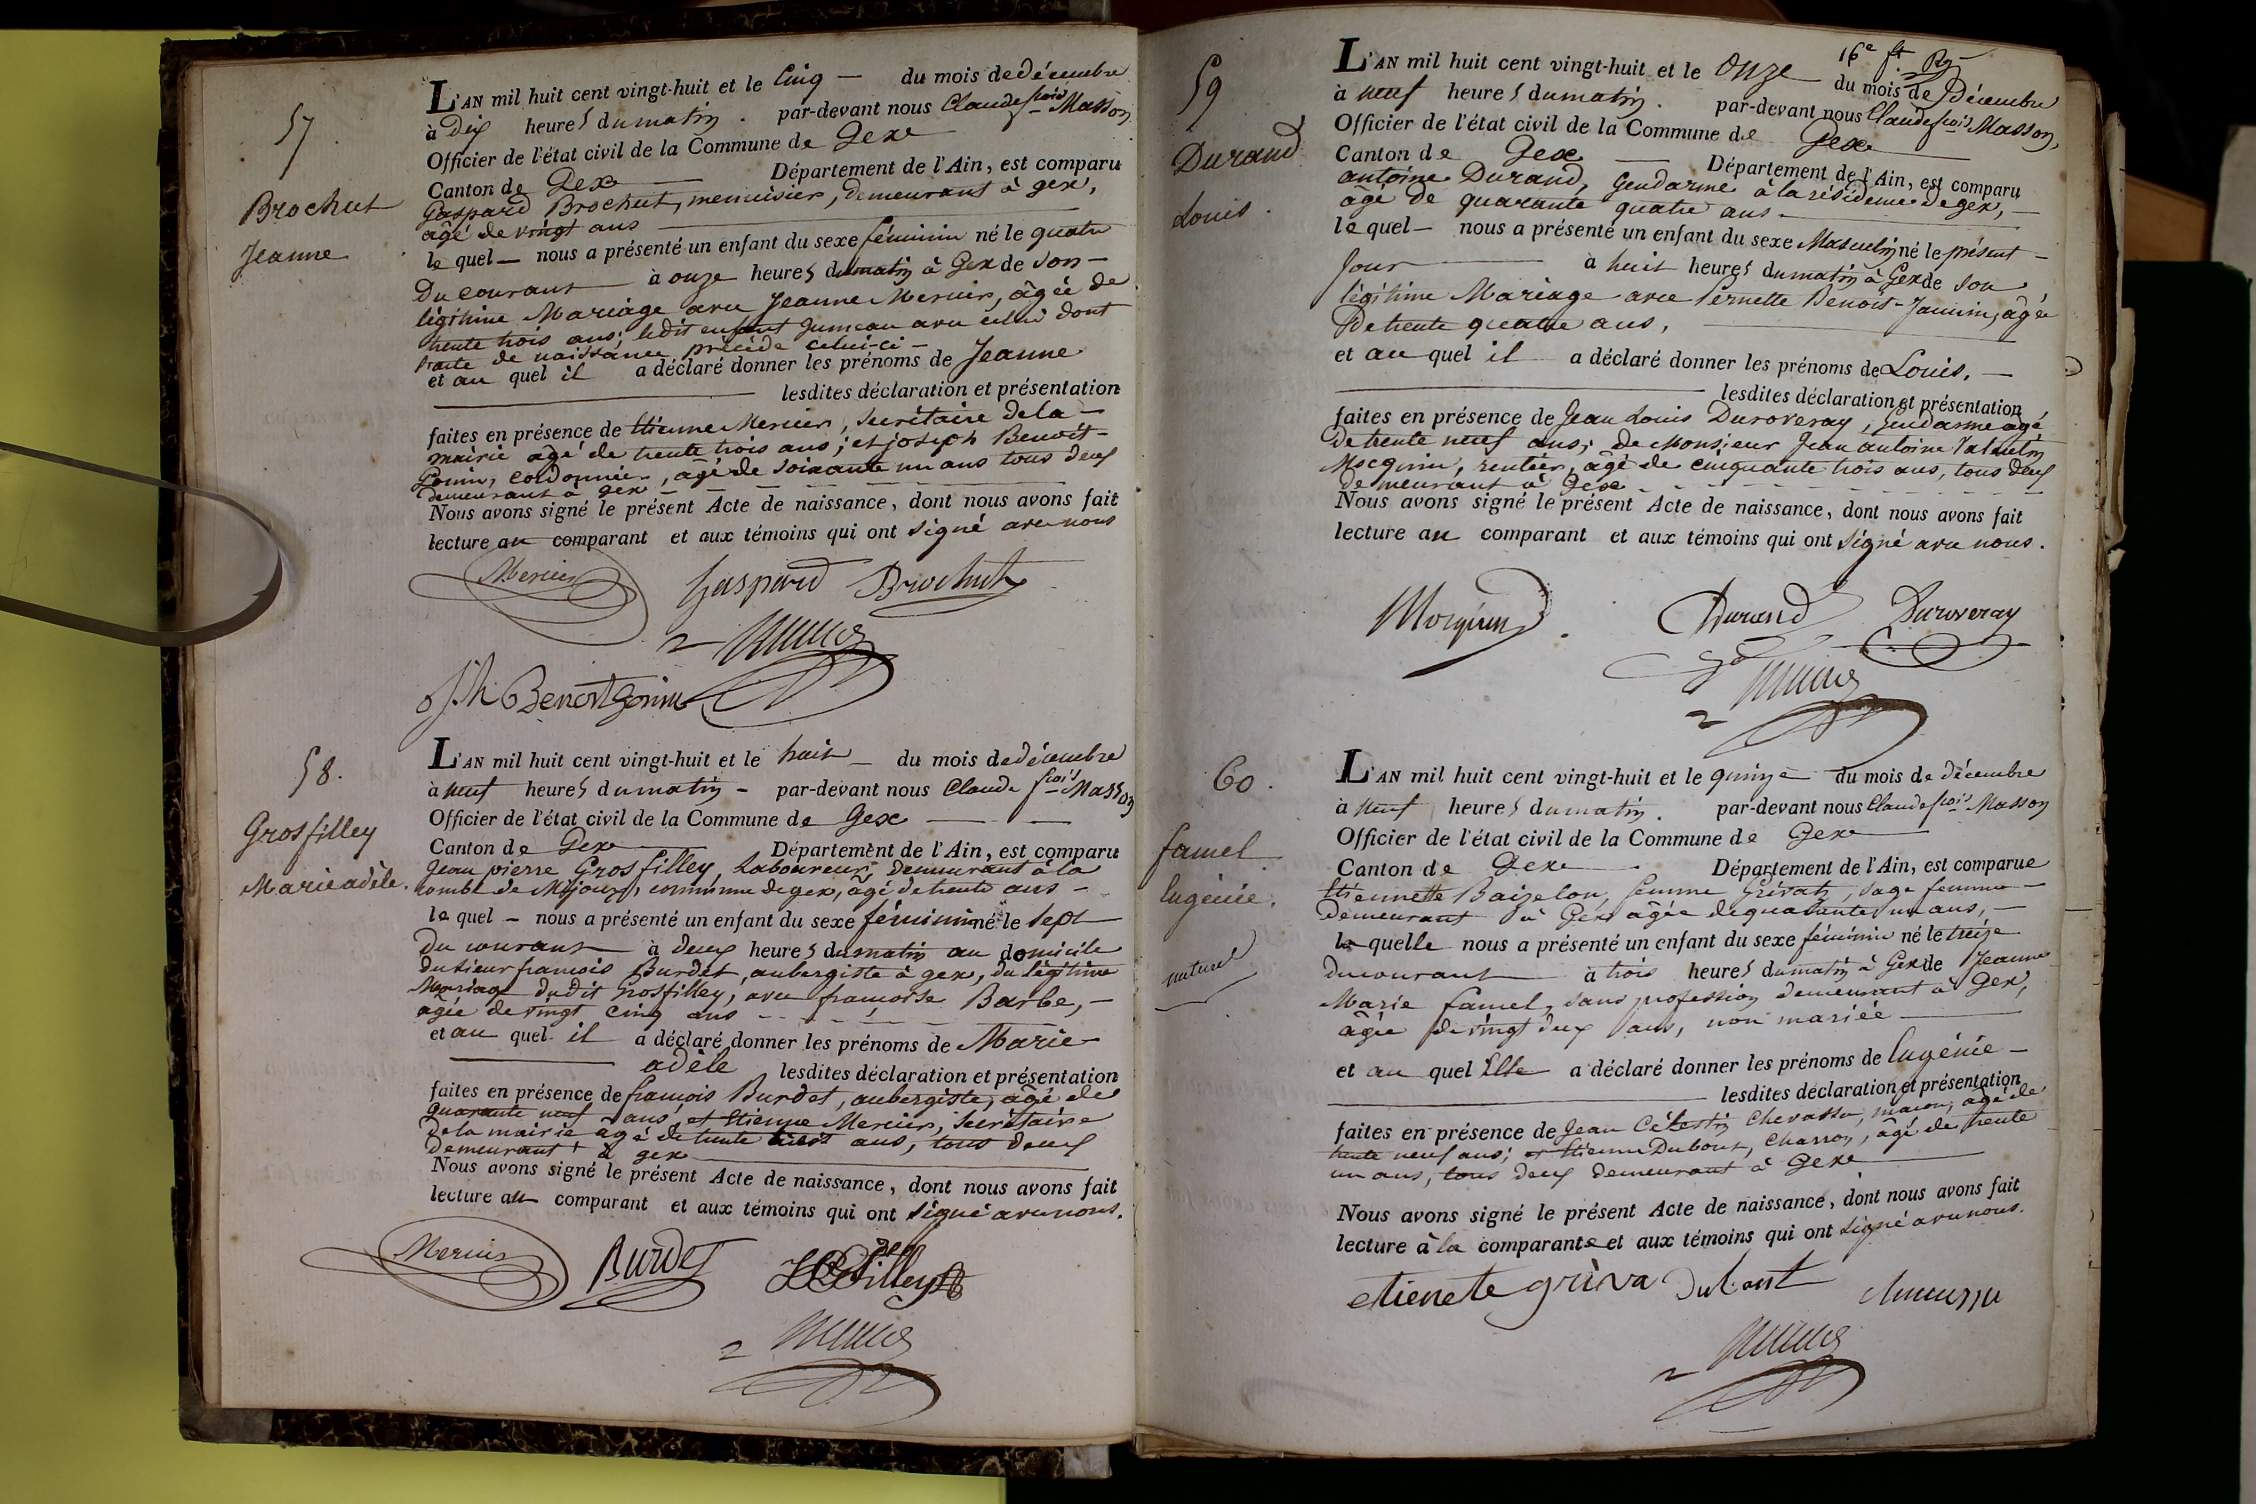 57
Brochut
Jeanne
L'AN mil huit cent vingt-huit et le Cinq — du mois de décembre
à Dix heures du matin . par-devant nous Claude fçois Masson
Officier de l'état civil de la Commune de Gex
Canton de Gex Département de l'Ain, est comparu
Gaspard Brochut, menuisier, demeurant à gex,
âgé de vingt ans
le quel — nous a présenté un enfant du sexe féminin né le quatre
du courant à onze heures du matin à Gex de son
légitime Mariage avec Jeanne Mercier, âgée de
trente trois ans, ledit enfant jumeau avec celui dont
l'acte de naissance précède celui-ci —
et au quel il a déclaré donner les prénoms de Jeanne
lesdites déclaration et présentation
faites en présence de Etienne Mercier, Secrétaire de la
mairie âgé de trente trois ans; et joseph Benoit-
Gonin, cordonnier, âgé de soixante un ans tous deux
demeurant à gex
Nous avons signé le présent Acte de naissance, dont nous avons fait
lecture au comparant et aux témoins qui ont signé avec nous
Mercier Gaspard Brochut
Jh Benoit gonin
58.
Grosfilley
Marie adèle.
L'AN mil huit cent vingt-huit et le huit — du mois de décembre
à neuf heures du matin - par-devant nous Claude fçois Masson
Officier de l'état civil de la Commune de Gex
Canton de Gex Département de l'Ain, est comparu
Jean pierre Grosfilley, Laboureur, demeurant à la
combe de Mijoux, commune de gex, âgé de trente ans -
le quel - nous a présenté un enfant du sexe féminin né le sept
du courant à deux heures du matin au domicile
du sieur françois Burdet, aubergiste à gex, du légitime
Mariage dudit Grosfilley, avec françoise Barbe, —
âgée de vingt cinq ans
et au quel il a déclaré donner les prénoms de Marie
adèle lesdites déclaration et présentation
faites en présence de françois Burdet, aubergiste, âgé de
quarante neuf ans, et Etienne Mercier, Secrétaire
de la mairie âgé de trente trois ans, tous deux
demeurant à gex
Nous avons signé le présent Acte de naissance, dont nous avons fait
lecture au comparant et aux témoins qui ont signé avec nous.
Mercier Burdet
16e ft
59
Durand
Louis.
L'AN mil huit cent vingt-huit et le Onze du mois de Décembre
à neuf heures du matin. par-devant nous Claude fçois Masson,
Officier de l'état civil de la Commune de Gex
Canton de Gex Département de l'Ain, est comparu
antoine Durand, gendarme à la résidence de gex, —
âgé de quarante quatre ans
le quel — nous a présenté un enfant du sexe Masculin né le présent —
Jour à huit heures du matin à Gex de son
légitime Mariage avec Pernette Benoit-Jannin, âgée
De trente quatre ans,
et au quel il a déclaré donner les prénoms de Louis. —
lesdites déclaration et présentation
faites en présence de Jean Louis Duroveray, gendarme âgé
De trente neuf ans; de Monsieur Jean antoine Valentin
Mocquin, rentier, âgé de cinquante trois ans, tous deux
demeurant à Gex
Nous avons signé le présent Acte de naissance, dont nous avons fait
lecture au comparant et aux témoins qui ont signé avec nous.
Mocquin Durand Duroveray
60.
famel
Eugénie.
naturel
L'AN mil huit cent vingt-huit et le quinze du mois de décembre
à neuf heures du matin. par-devant nous Claude fçois Masson
Officier de l'état civil de la Commune de Gex
Canton de Gex Département de l'Ain, est comparue
Etiennette Baizelon, femme Grivat, sage femme —
demeurant à Gex âgée de quarante un ans, —
la quelle nous a présenté un enfant du sexe féminin né le treize
du courant à trois heures du matin à Gex de Jeanne
Marie famel, sans profession demeurant à Gex,
âgée de vingt deux ans, non mariée
et au quel Elle a déclaré donner les prénoms de Eugénie —
lesdites déclaration et présentation
faites en présence de Jean Célestin Chevassu, maçon, âgé de
trente neuf ans; et Etienne Dubout, Charron, âgé de trente
un ans, tous deux demeurant à Gex
Nous avons signé le présent Acte de naissance, dont nous avons fait
lecture à la comparante et aux témoins qui ont signé avec nous.
etienete griva